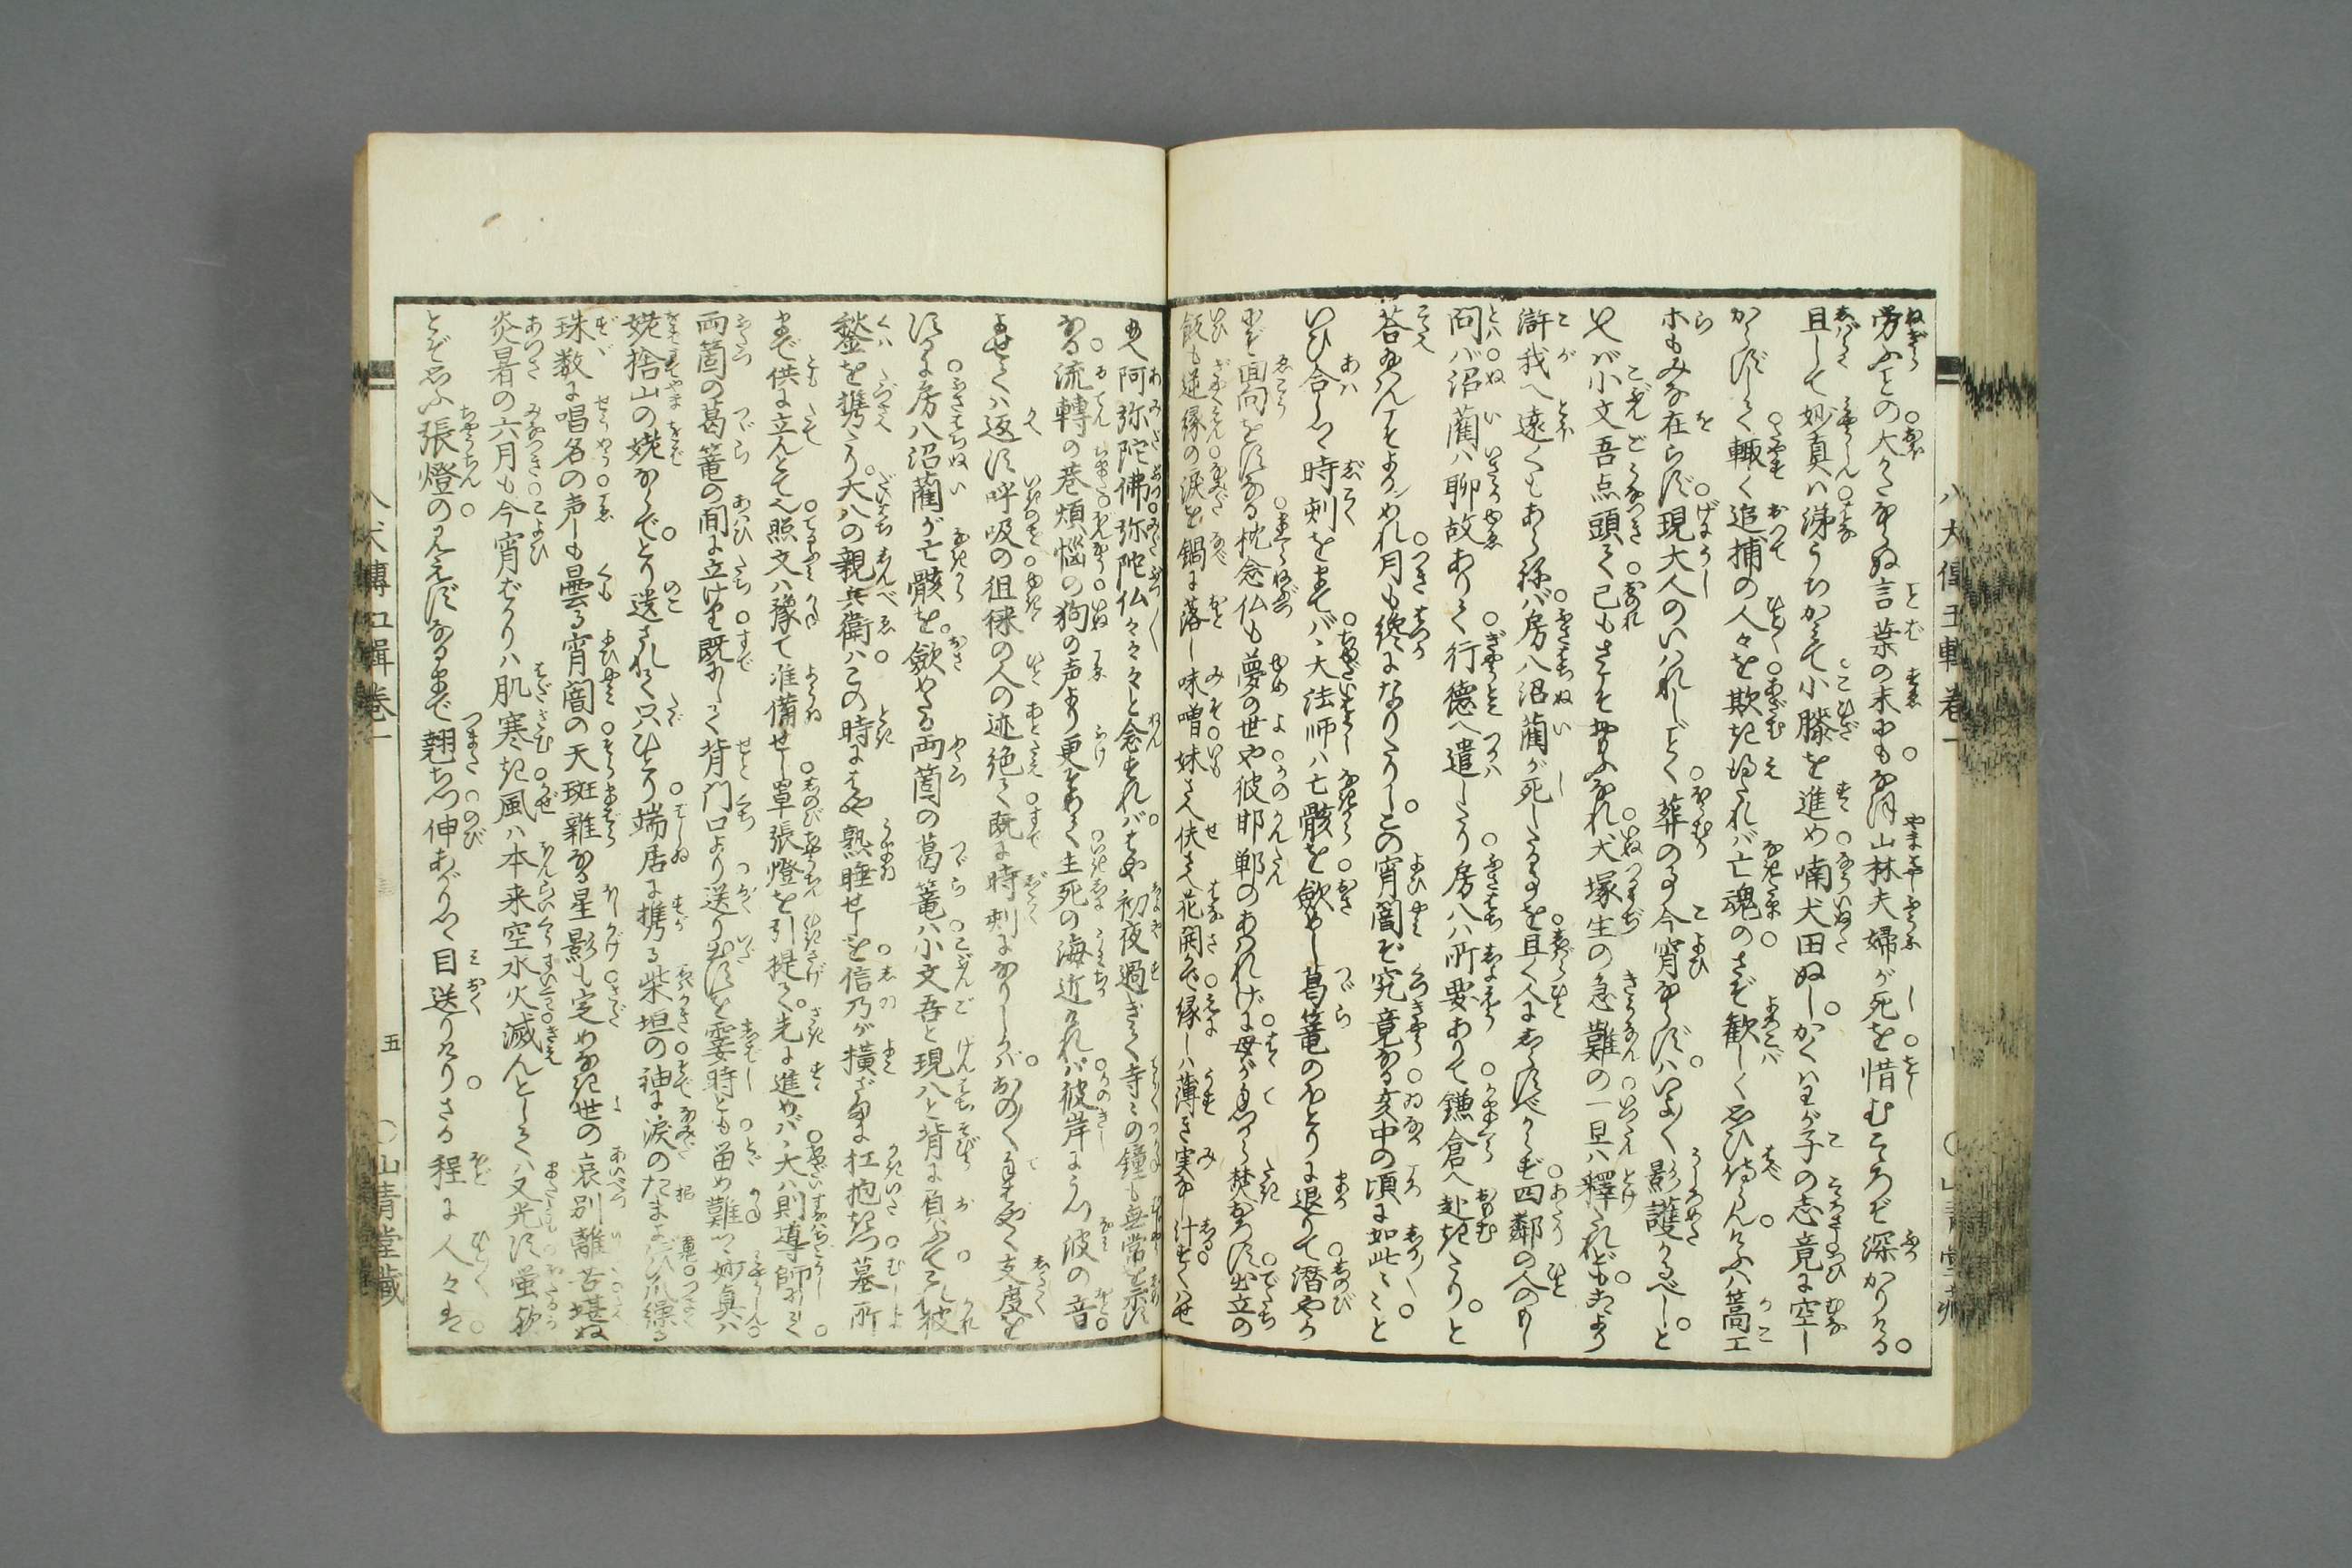 勞ふとの大かたならぬ言葉の末にもなほ山林夫婦が死を惜むこころぞ深かりける。
且して妙真は涕うちかみて小膝を進め喃犬田ぬしかくはわが子の志竟に空し
からずして輙く追捕の人々を欺き得たれば亡魂のさぞ歓しく思ひ侍らんにふは篙工
ホもみな在らず現大人のいはれしごとく葬の事今宵ならずはいよよく影護かるべしと
いへば小文吾点頭て己もさこそ思ふなれ犬塚生の急難の一旦は釋たれどもあより
滸我へ遠くもあらねば房八沼藺が死したる事を且く人にしらすべからず四鄰の人のもし
問はば沼藺は聊故ありて行徳へ遣したり房八は所要ありて鎌倉へ赴きたりと
荅給へんそよかめれ月も纔になりたりしこの宵闇ぞ究竟なる亥中の頃に如此々々と
いひ合しつ時刻をまてば丶大法師は亡骸を斂めし葛篭のほとりに退りて潜やか
にぞ回向をすなる枕念仏も夢の世や彼邯鄲のあはれげに母が自から焚かす出立の
飯も逆縁の涙を鍋に落し味噌妹さへ伕さへ花開かぬ縁しは薄き実なし汁まてはせ
八犬傳五輯卷一
○山青堂藏
給へ阿弥陀佛弥陀仏々々々と念ずればはや初夜過ぎて寺々の鐘も無常を示す
なる流轉の巷煩悩の狗の声より更そめて生死の海近ければ彼岸によする波の音
よせては返す呼吸の徂徠の人の迹絶て既に時刻になりしかばおのおの身ぞびて支度を
しつるに房八沼藺が亡骸を斂めたる両箇の葛篭は小文吾と現八と背に負ふて二個彼
鍫を携たり大八の親兵衛はこの時にはや熟睡せしを信乃が横ざまに扛抱きつ墓所
まで供に立んとて照文は豫て准備せし單張燈を引提て先に進めば丶大は則導師にして
両箇の葛篭の間に立けり既にして背門口より送り出すを霎時とも留め難つ妙真は
姥捨山の姥ならでとり遺されて只ひとり端居に携る柴垣の袖に涙のたまよばひ爪繰る
珠数に唱名の声しも曇る宵闇の天斑雜なる星影も定めなき世の哀別離苦堪ぬ
炎暑の六月も今宵ばかりは肌寒き風は本来空水火滅んとしては又光す螢歟
とぞ思ふ張燈の見えずなるまで翹ちつ伸あがりつつ目送りけりさる程に人々は
八犬傳五輯卷一
五
○山青堂藏